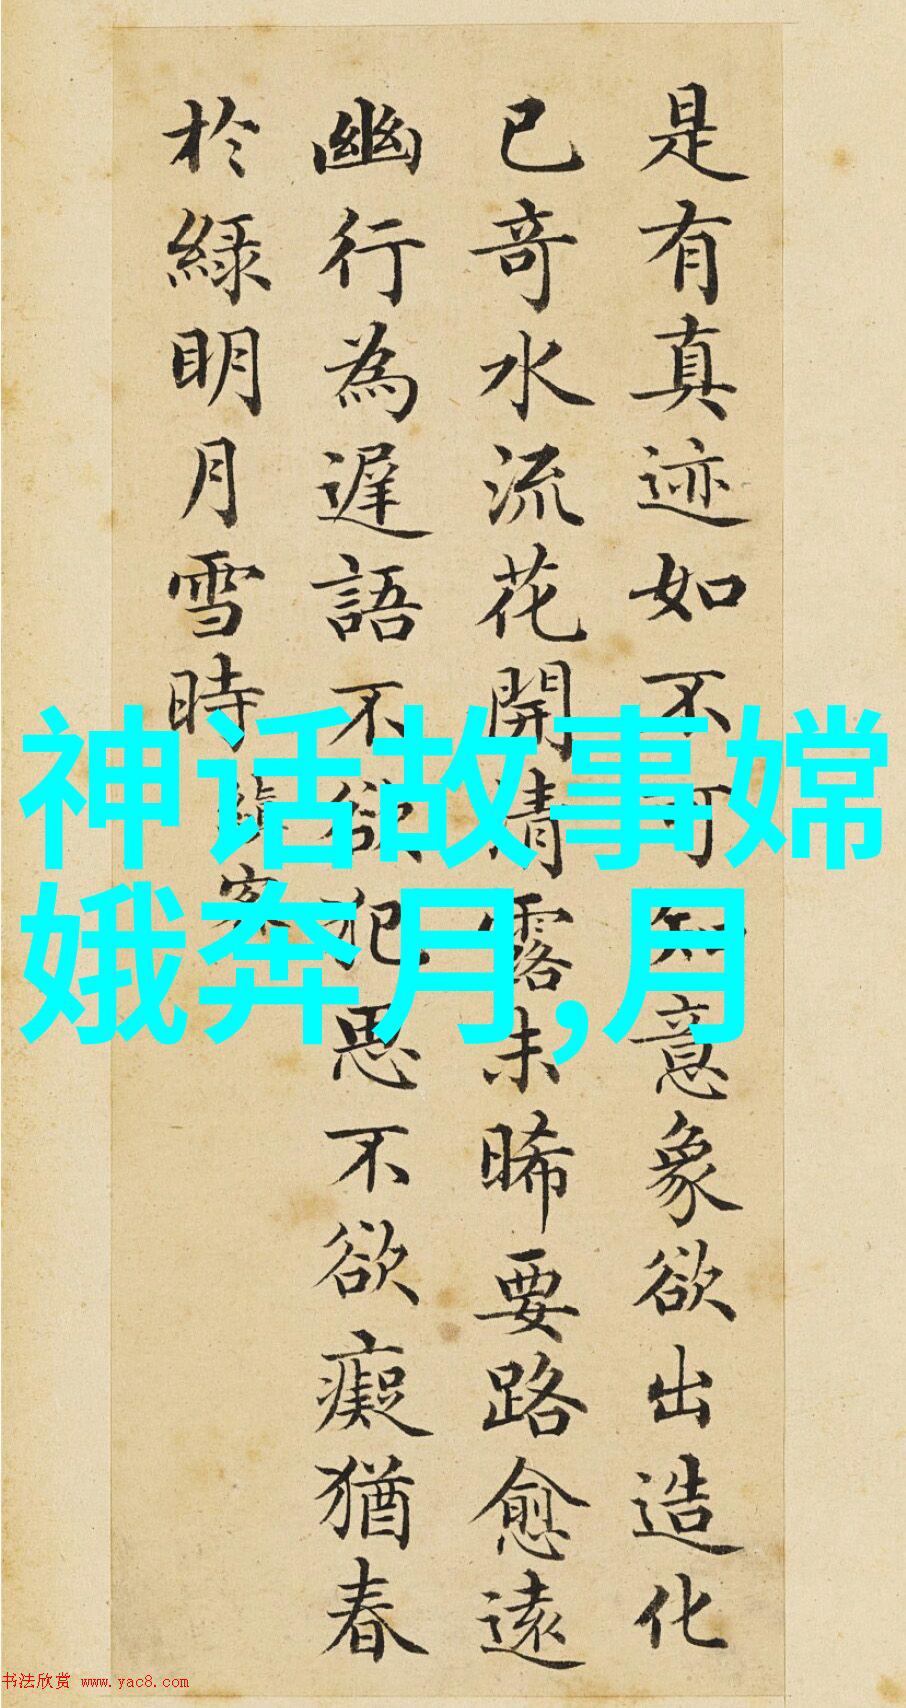 是有真迹如不可知意象欲出造化
已奇水流花開清露未晞要路愈遠
幽行為遲語不欲犯思不欲癡猶春
於綠明月雪時
縝密
神话故事嫦
娥奔月,月
书法欣赏 www.yac8.com